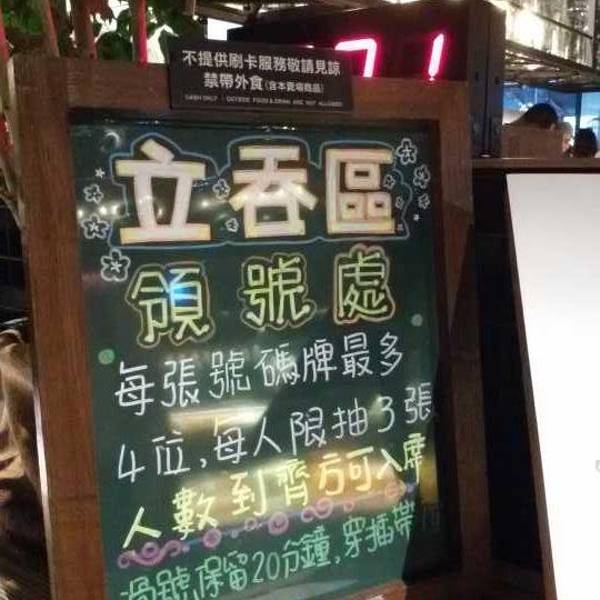 不提供刷卡服務敬請見諒
禁帶外食(含本賣場商品)
CASH ONLY | OUTSIDE FOOD & DRINK ARE NOT ALLOWED
71
立吞區
領號處
每張號碼牌最多
4位,每人限抽3張
人數到齊方可入席
過號保留20分鐘,穿插帶